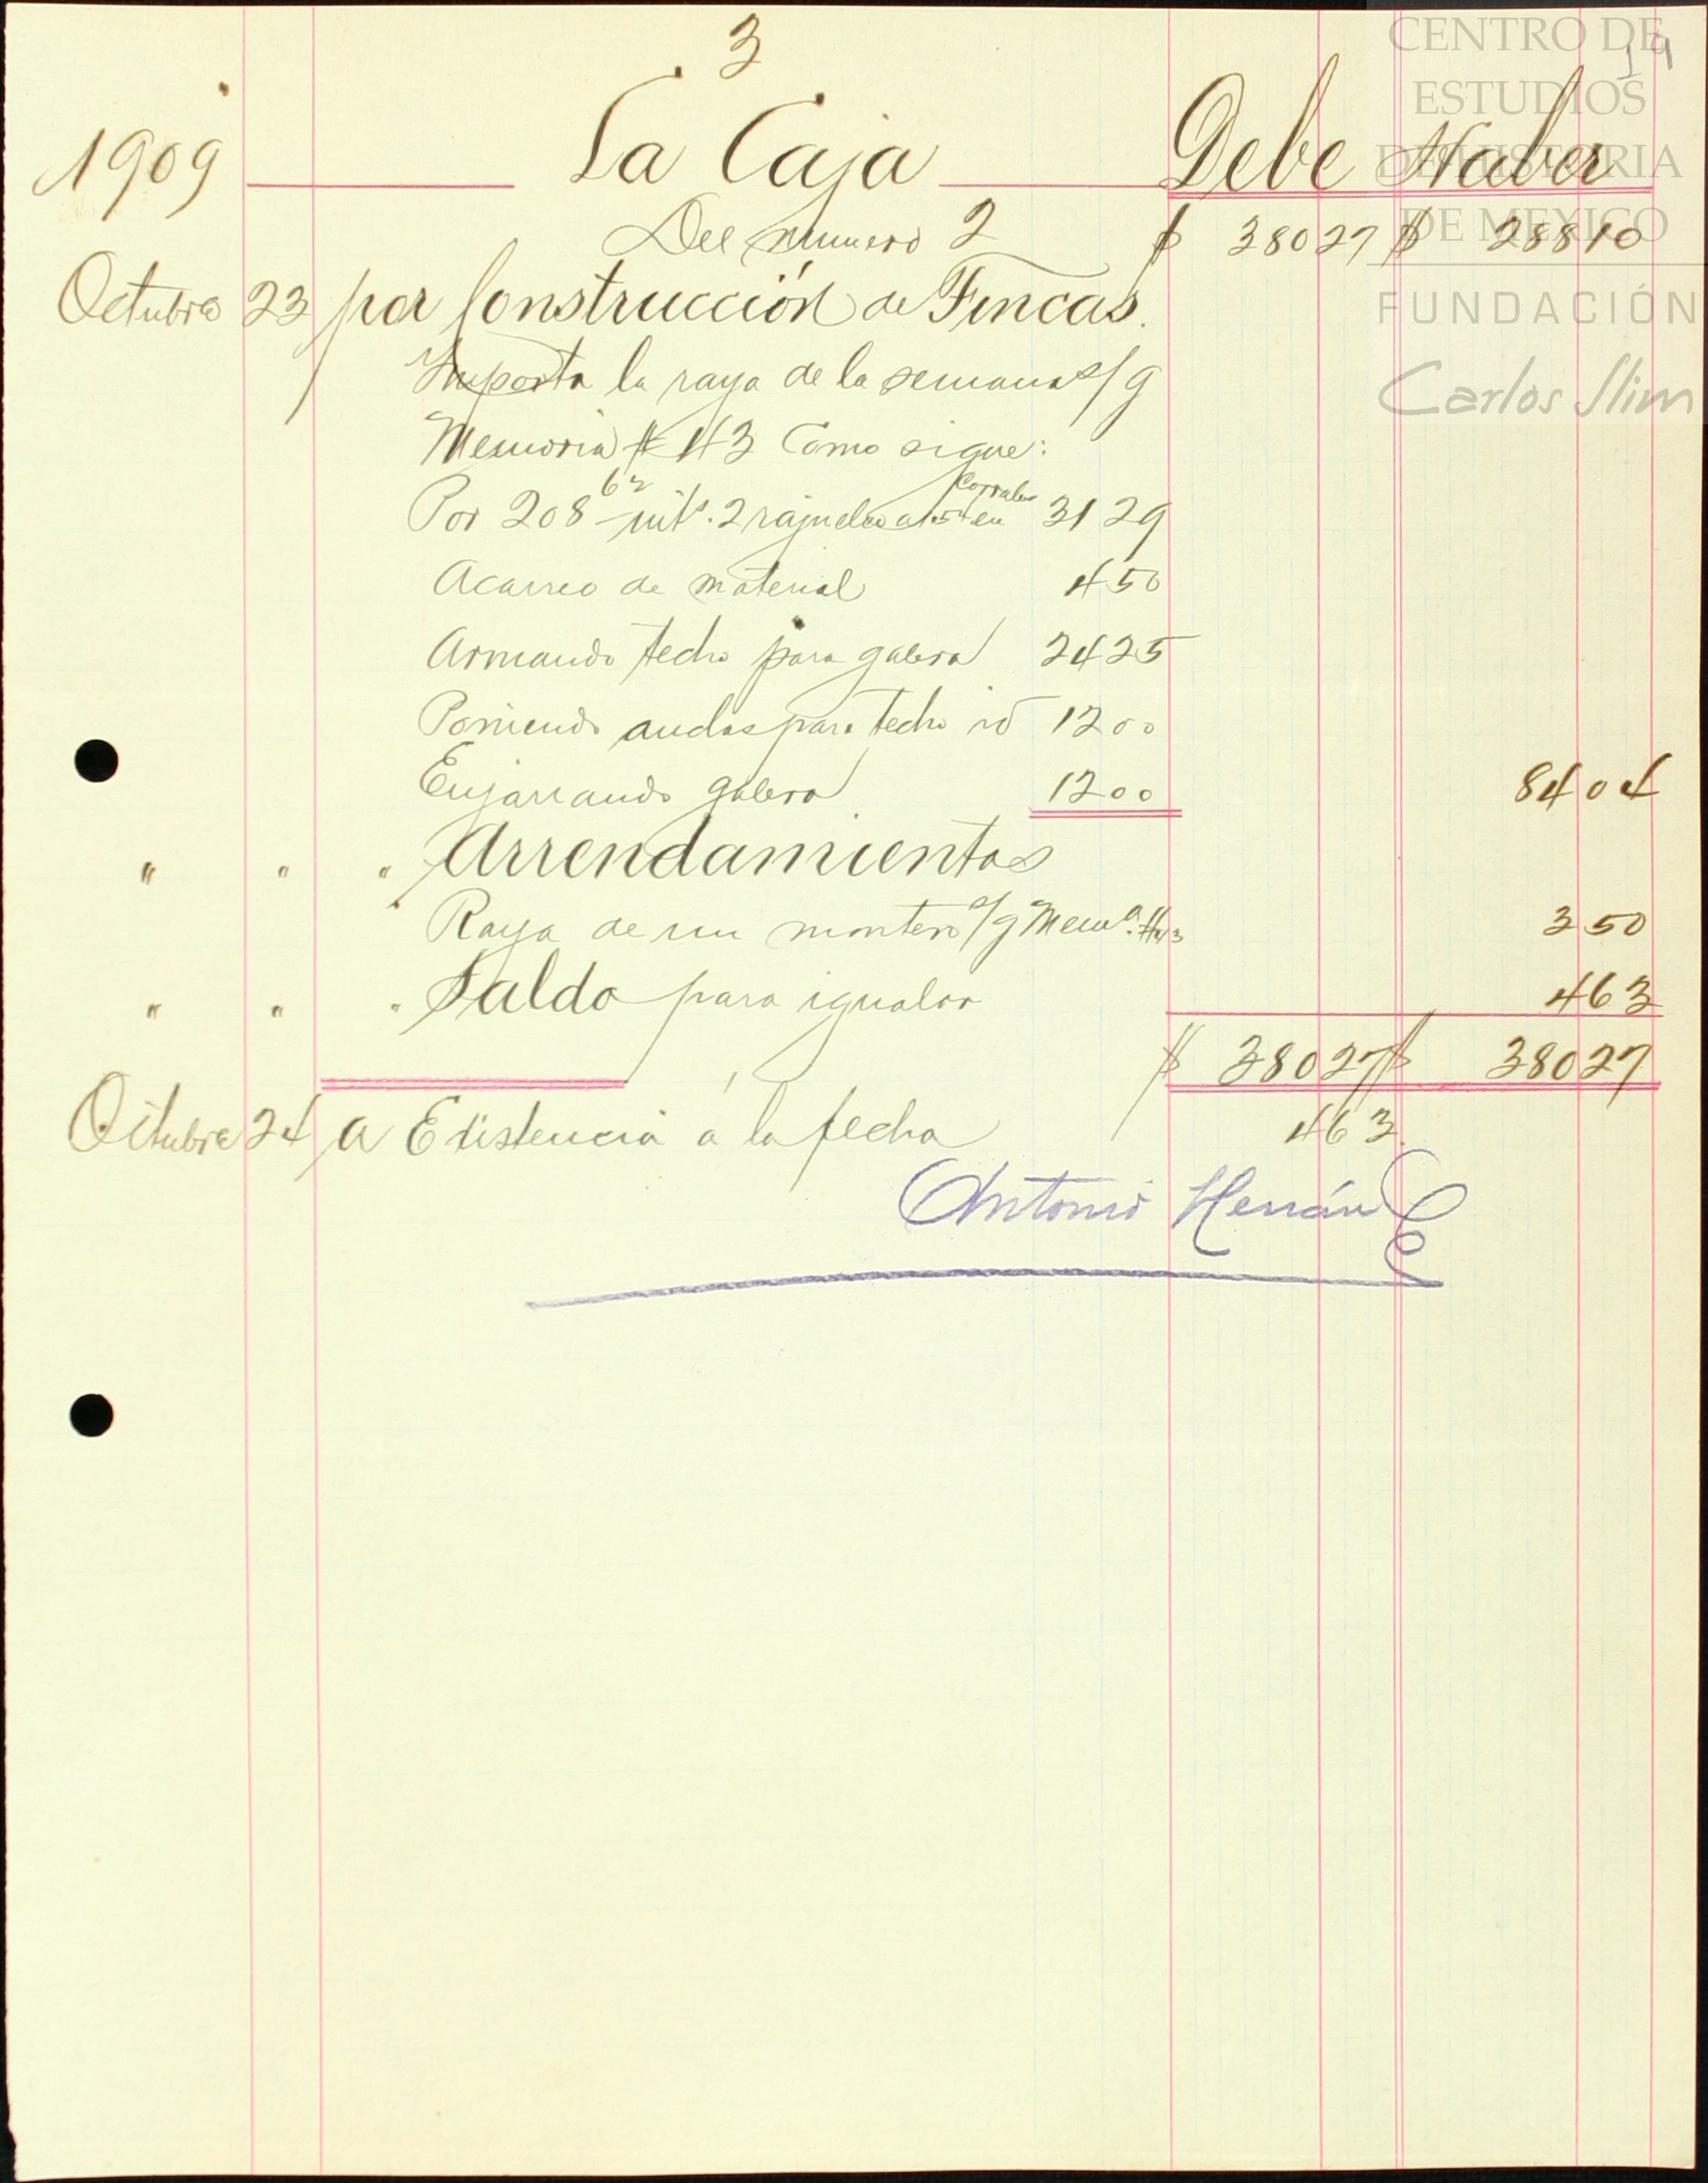 3
19
CENTRO DE
ESTUDIOS
DE HISTORIA
DE MEXICO
FUNDACIÓN
Carlos Slim
1909 La Caja Debe Haber
Del número 2 $ 38027 $ 28810
Octubre 23 por Construcción de Fincas.
Importa la raya de la semana s/g
Memoria # 43 Como sigue:
Por 208 62 mts. 2 rajuelea a 15 en Corrales 31 29
Acarreo de material 4 50
Armando techo para galera 24 25
Poniendo para techo id 12 00
Enjarrando galera 12 00 84 04
" " " Arrendamientos
Raya de un montero s/g Mema. #43 3 50
" " " Saldo para igualar 4 63
$ 380 27 $ 380 27
Octubre 24 a Existencia a la fecha 4 63
Antonio Herrán